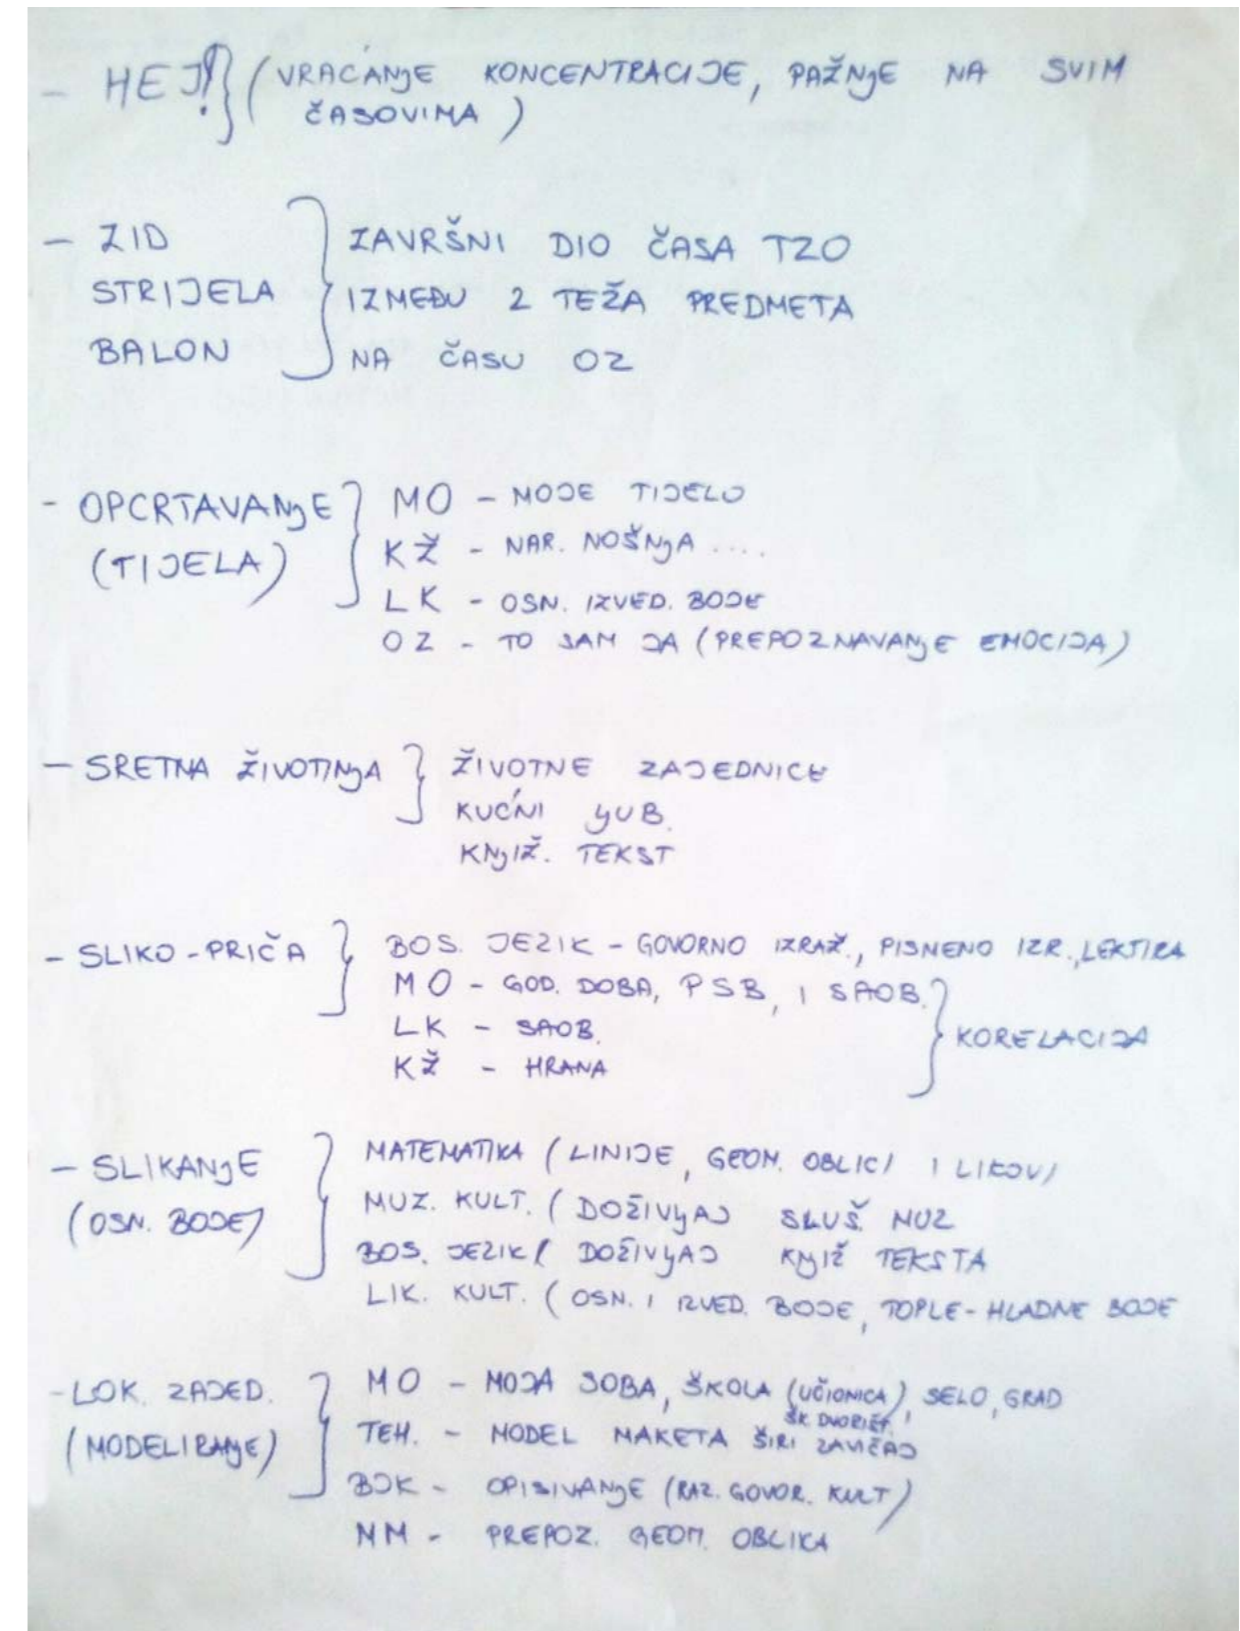 - HEJ!} (VRAĆANJE KONCENTRACIJE, PAŽNJE NA SVIM
ČASOVIMA)
- ZID } ZAVRŠNI DIO ČASA TZO
STRIJELA IZMEĐU 2 TEŽA PREDMETA
BALON NA ČASU OZ
- OPCRTAVANJE } MO - MOJE TIJELO
(TIJELA) KŽ - NAR. NOŠNJA ....
LK - OSN. IZVED. BOJE
OZ - TO SAM JA (PREPOZNAVANJE EMOCIJA)
- SRETNA ŽIVOTINJA } ŽIVOTNE ZAJEDNICE
KUĆNI LJUB.
KNJIŽ. TEKST
- SLIKO-PRIČA } BOS. JEZIK - GOVORNO IZRAŽ., PISMENO IZR., LEKTIRA
MO - GOD. DOBA, PSB, I SAOB. } KORELACIJA
LK - SAOB.
KŽ - HRANA
- SLIKANJE } MATEMATIKA (LINIJE, GEOM. OBLICI I LIKOVI
(OSN. BOJE) MUZ. KULT. (DOŽIVLJAJ SLUŠ. MUZ
BOS. JEZIK ( DOŽIVLJAJ KNJIŽ TEKSTA
LIK. KULT. (OSN. I IZVED. BOJE, TOPLE-HLADNE BOJE
- LOK. ZAJED. } MO - MOJA SOBA, ŠKOLA (UČIONICA), SELO, GRAD
ŠK. DVORIŠT.
(MODELIRANJE) TEH. - MODEL MAKETA ŠIRI ZAVIČAJ
BJK - OPISIVANJE (RAZ. GOVOR. KULT)
MM - PREPOZ. GEOM. OBLIKA